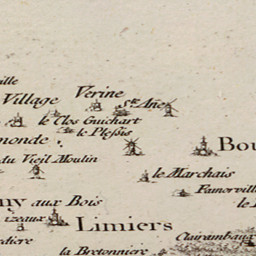 ville
Village
Verine
Ste. Ane
le Clos Guichart
le Plessis
monde
Bou
du Vieil Moulin
le Marchais
Funorville
le
ny aux Bois
izeaux
Limiers
Clairambaux
diere
la Bretonniere